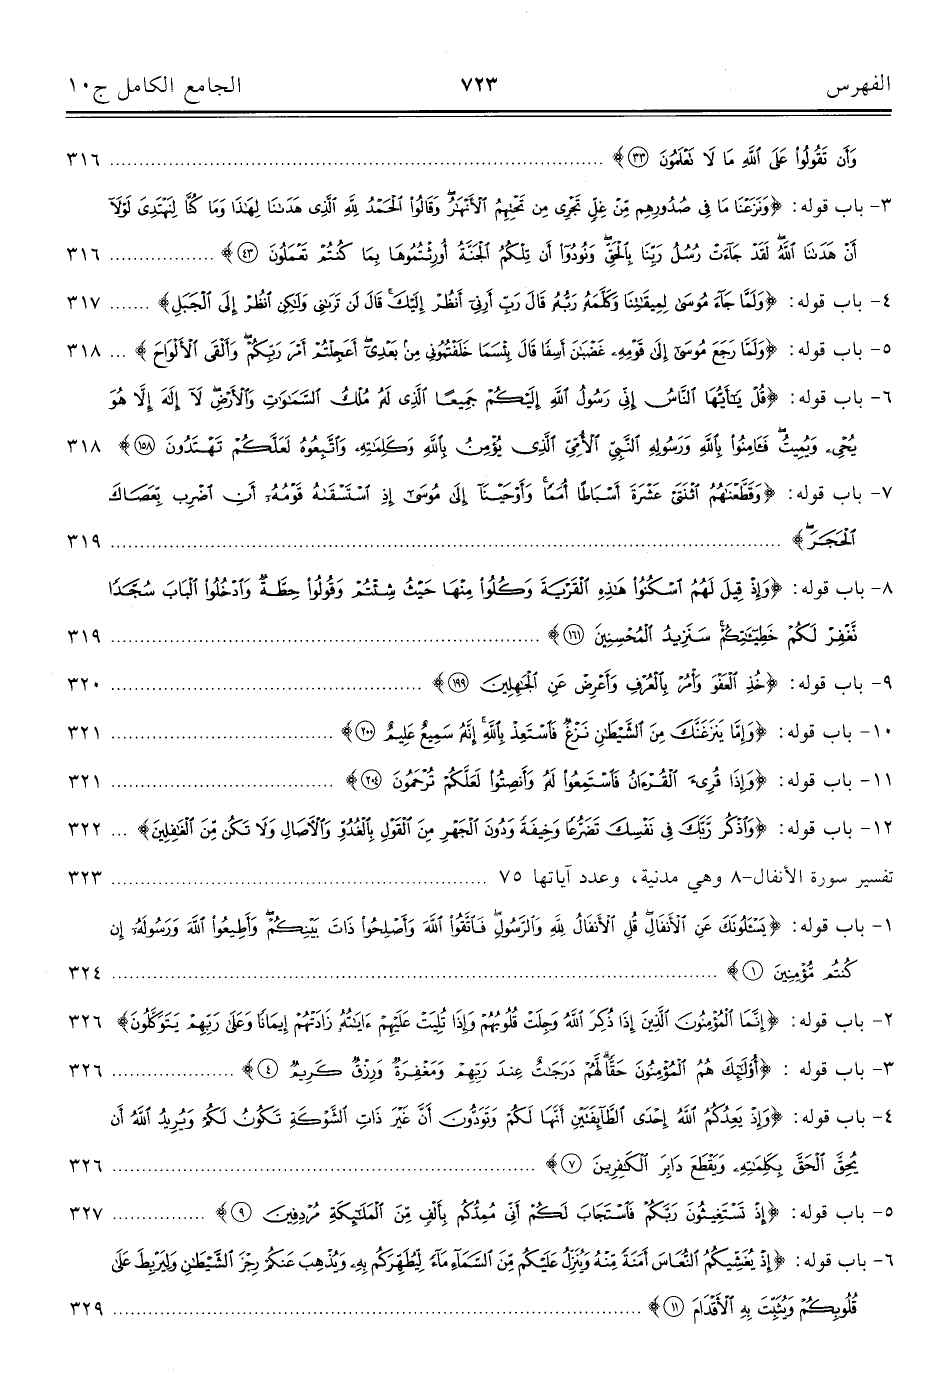 الفهرس ٧٢٣ الجامع الكامل ج١٠
وَأَن تَقُولُوا۟ عَلَى ٱللَّهِ مَا لَا نَعْلَمُونَ ﴿٣٣﴾ ................ ٣١٦
٣- باب قوله: ﴿وَنَزَعْنَا مَا فِى صُدُورِهِم مِّنْ غِلٍّ تَجْرِى مِن تَحْتِهِمُ ٱلْأَنْهَٰرُ ۖ وَقَالُوا۟ ٱلْحَمْدُ لِلَّهِ ٱلَّذِى هَدَىٰنَا لِهَٰذَا وَمَا كُنَّا لِنَهْتَدِىَ لَوْلَآ
أَنْ هَدَىٰنَا ٱللَّهُ ۖ لَقَدْ جَآءَتْ رُسُلُ رَبِّنَا بِٱلْحَقِّ ۖ وَنُودُوٓا۟ أَن تِلْكُمُ ٱلْجَنَّةُ أُورِثْتُمُوهَا بِمَا كُنتُمْ تَعْمَلُونَ (٤٣)﴾ ................ ٣١٦
٤- باب قوله: ﴿وَلَمَّا جَآءَ مُوسَىٰ لِمِيقَٰتِنَا وَكَلَّمَهُۥ رَبُّهُۥ قَالَ رَبِّ أَرِنِىٓ أَنظُرْ إِلَيْكَ ۚ قَالَ لَن تَرَىٰنِى وَلَٰكِنِ ٱنظُرْ إِلَى ٱلْجَبَلِ﴾ ....... ٣١٧
٥- باب قوله: ﴿وَلَمَّا رَجَعَ مُوسَىٰٓ إِلَىٰ قَوْمِهِۦ غَضْبَٰنَ أَسِفًا قَالَ بِئْسَمَا خَلَفْتُمُونِى مِنۢ بَعْدِىٓ ۖ أَعَجِلْتُمْ أَمْرَ رَبِّكُمْ ۖ وَأَلْقَى ٱلْأَلْوَاحَ﴾ ... ٣١٨
٦- باب قوله: ﴿قُلْ يَٰٓأَيُّهَا ٱلنَّاسُ إِنِّى رَسُولُ ٱللَّهِ إِلَيْكُمْ جَمِيعًا ٱلَّذِى لَهُۥ مُلْكُ ٱلسَّمَٰوَٰتِ وَٱلْأَرْضِ ۖ لَآ إِلَٰهَ إِلَّا هُوَ
يُحْىِۦ وَيُمِيتُ ۖ فَـَٔامِنُوا۟ بِٱللَّهِ وَرَسُولِهِ ٱلنَّبِىِّ ٱلْأُمِّىِّ ٱلَّذِى يُؤْمِنُ بِٱللَّهِ وَكَلِمَٰتِهِۦ وَٱتَّبِعُوهُ لَعَلَّكُمْ تَهْتَدُونَ (١٥٨)﴾ ٣١٨
٧- باب قوله: ﴿وَقَطَّعْنَٰهُمُ ٱثْنَتَىْ عَشْرَةَ أَسْبَاطًا أُمَمًا ۚ وَأَوْحَيْنَآ إِلَىٰ مُوسَىٰٓ إِذِ ٱسْتَسْقَىٰهُ قَوْمُهُۥٓ أَنِ ٱضْرِب بِّعَصَاكَ
ٱلْحَجَرَ ۖ﴾ ................ ٣١٩
٨- باب قوله: ﴿وَإِذْ قِيلَ لَهُمُ ٱسْكُنُوا۟ هَٰذِهِ ٱلْقَرْيَةَ وَكُلُوا۟ مِنْهَا حَيْثُ شِئْتُمْ وَقُولُوا۟ حِطَّةٌ وَٱدْخُلُوا۟ ٱلْبَابَ سُجَّدًا
نَّغْفِرْ لَكُمْ خَطِيٓـَٰٔتِكُمْ ۚ سَنَزِيدُ ٱلْمُحْسِنِينَ (١٦١)﴾ ................ ٣١٩
٩- باب قوله: ﴿خُذِ ٱلْعَفْوَ وَأْمُرْ بِٱلْعُرْفِ وَأَعْرِضْ عَنِ ٱلْجَٰهِلِينَ (١٩٩)﴾ ................ ٣٢٠
١٠- باب قوله: ﴿وَإِمَّا يَنزَغَنَّكَ مِنَ ٱلشَّيْطَٰنِ نَزْغٌ فَٱسْتَعِذْ بِٱللَّهِ ۚ إِنَّهُۥ سَمِيعٌ عَلِيمٌ (٢٠٠)﴾ ................ ٣٢١
١١- باب قوله: ﴿وَإِذَا قُرِئَ ٱلْقُرْءَانُ فَٱسْتَمِعُوا۟ لَهُۥ وَأَنصِتُوا۟ لَعَلَّكُمْ تُرْحَمُونَ (٢٠٤)﴾ ................ ٣٢١
١٢- باب قوله: ﴿وَٱذْكُر رَّبَّكَ فِى نَفْسِكَ تَضَرُّعًا وَخِيفَةً وَدُونَ ٱلْجَهْرِ مِنَ ٱلْقَوْلِ بِٱلْغُدُوِّ وَٱلْـَٔاصَالِ وَلَا تَكُن مِّنَ ٱلْغَٰفِلِينَ﴾ ... ٣٢٢
تفسير سورة الأنفال-٨ وهي مدنية، وعدد آياتها ٧٥ ................ ٣٢٣
١- باب قوله: ﴿يَسْـَٔلُونَكَ عَنِ ٱلْأَنفَالِ ۖ قُلِ ٱلْأَنفَالُ لِلَّهِ وَٱلرَّسُولِ ۖ فَٱتَّقُوا۟ ٱللَّهَ وَأَصْلِحُوا۟ ذَاتَ بَيْنِكُمْ ۖ وَأَطِيعُوا۟ ٱللَّهَ وَرَسُولَهُۥٓ إِن
كُنتُم مُّؤْمِنِينَ (١)﴾ ................ ٣٢٤
٢- باب قوله: ﴿إِنَّمَا ٱلْمُؤْمِنُونَ ٱلَّذِينَ إِذَا ذُكِرَ ٱللَّهُ وَجِلَتْ قُلُوبُهُمْ وَإِذَا تُلِيَتْ عَلَيْهِمْ ءَايَٰتُهُۥ زَادَتْهُمْ إِيمَٰنًا وَعَلَىٰ رَبِّهِمْ يَتَوَكَّلُونَ﴾ ٣٢٦
٣- باب قوله : ﴿أُو۟لَٰٓئِكَ هُمُ ٱلْمُؤْمِنُونَ حَقًّا ۚ لَّهُمْ دَرَجَٰتٌ عِندَ رَبِّهِمْ وَمَغْفِرَةٌ وَرِزْقٌ كَرِيمٌ (٤)﴾ ................ ٣٢٦
٤- باب قوله: ﴿وَإِذْ يَعِدُكُمُ ٱللَّهُ إِحْدَى ٱلطَّآئِفَتَيْنِ أَنَّهَا لَكُمْ وَتَوَدُّونَ أَنَّ غَيْرَ ذَاتِ ٱلشَّوْكَةِ تَكُونُ لَكُمْ وَيُرِيدُ ٱللَّهُ أَن
يُحِقَّ ٱلْحَقَّ بِكَلِمَٰتِهِۦ وَيَقْطَعَ دَابِرَ ٱلْكَٰفِرِينَ (٧)﴾ ................ ٣٢٦
٥- باب قوله: ﴿إِذْ تَسْتَغِيثُونَ رَبَّكُمْ فَٱسْتَجَابَ لَكُمْ أَنِّى مُمِدُّكُم بِأَلْفٍ مِّنَ ٱلْمَلَٰٓئِكَةِ مُرْدِفِينَ (٩)﴾ ................ ٣٢٧
٦- باب قوله: ﴿إِذْ يُغَشِّيكُمُ ٱلنُّعَاسَ أَمَنَةً مِّنْهُ وَيُنَزِّلُ عَلَيْكُم مِّنَ ٱلسَّمَآءِ مَآءً لِّيُطَهِّرَكُم بِهِۦ وَيُذْهِبَ عَنكُمْ رِجْزَ ٱلشَّيْطَٰنِ وَلِيَرْبِطَ عَلَىٰ
قُلُوبِكُمْ وَيُثَبِّتَ بِهِ ٱلْأَقْدَامَ (١١)﴾ ................ ٣٢٩